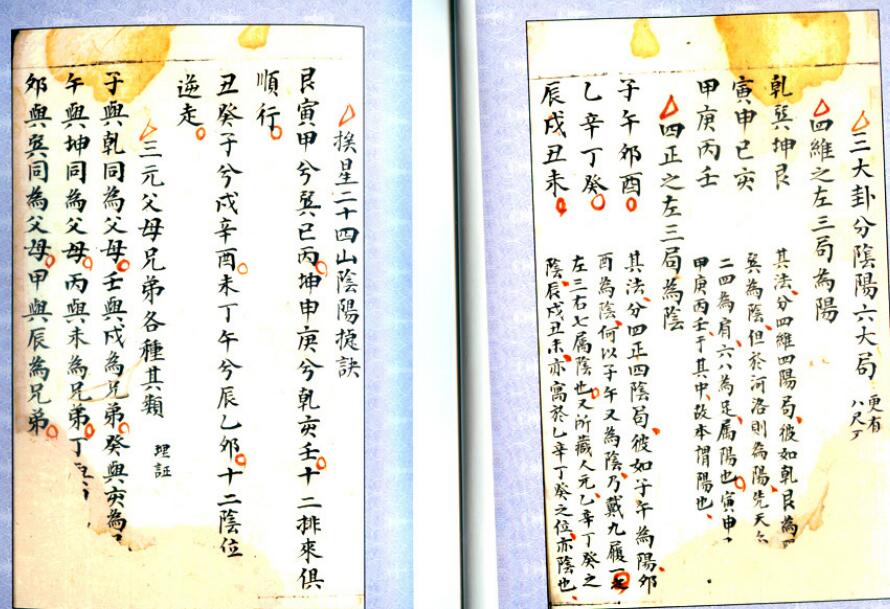 三大卦分陰陽六大局 更有
四維之左三局為陽
乾巽坤艮
寅申巳亥
甲庚丙壬
其法分四維四陽局彼如乾艮為
巽為陰但於河洛則為陽先天
二四為肩六八為足属陽也寅申
甲庚丙壬于其中故本謂陽也
四正之左三局為陰
子午夘酉
乙辛丁癸
辰戌丑未
其法分四正四陰局彼如子午為陽夘
酉為陰何以子午又為陰乃戴九履一
左三右七属陰也又所藏人元乙辛丁癸之
陰辰戌丑未亦寓於乙辛丁癸之位亦陰也
挨星二十四山陰陽捷訣
艮寅甲兮巽巳丙坤申庚兮乾亥壬十二排來俱
順行
丑癸子兮戌辛酉未丁午兮辰乙夘十二陰位
逆走
三元父母兄弟各種其類 理証
子與乾同為父母壬與戌為兄弟癸與亥為
午與坤同為父母丙與未為兄弟丁
夘與巽同為父母甲與辰為兄弟